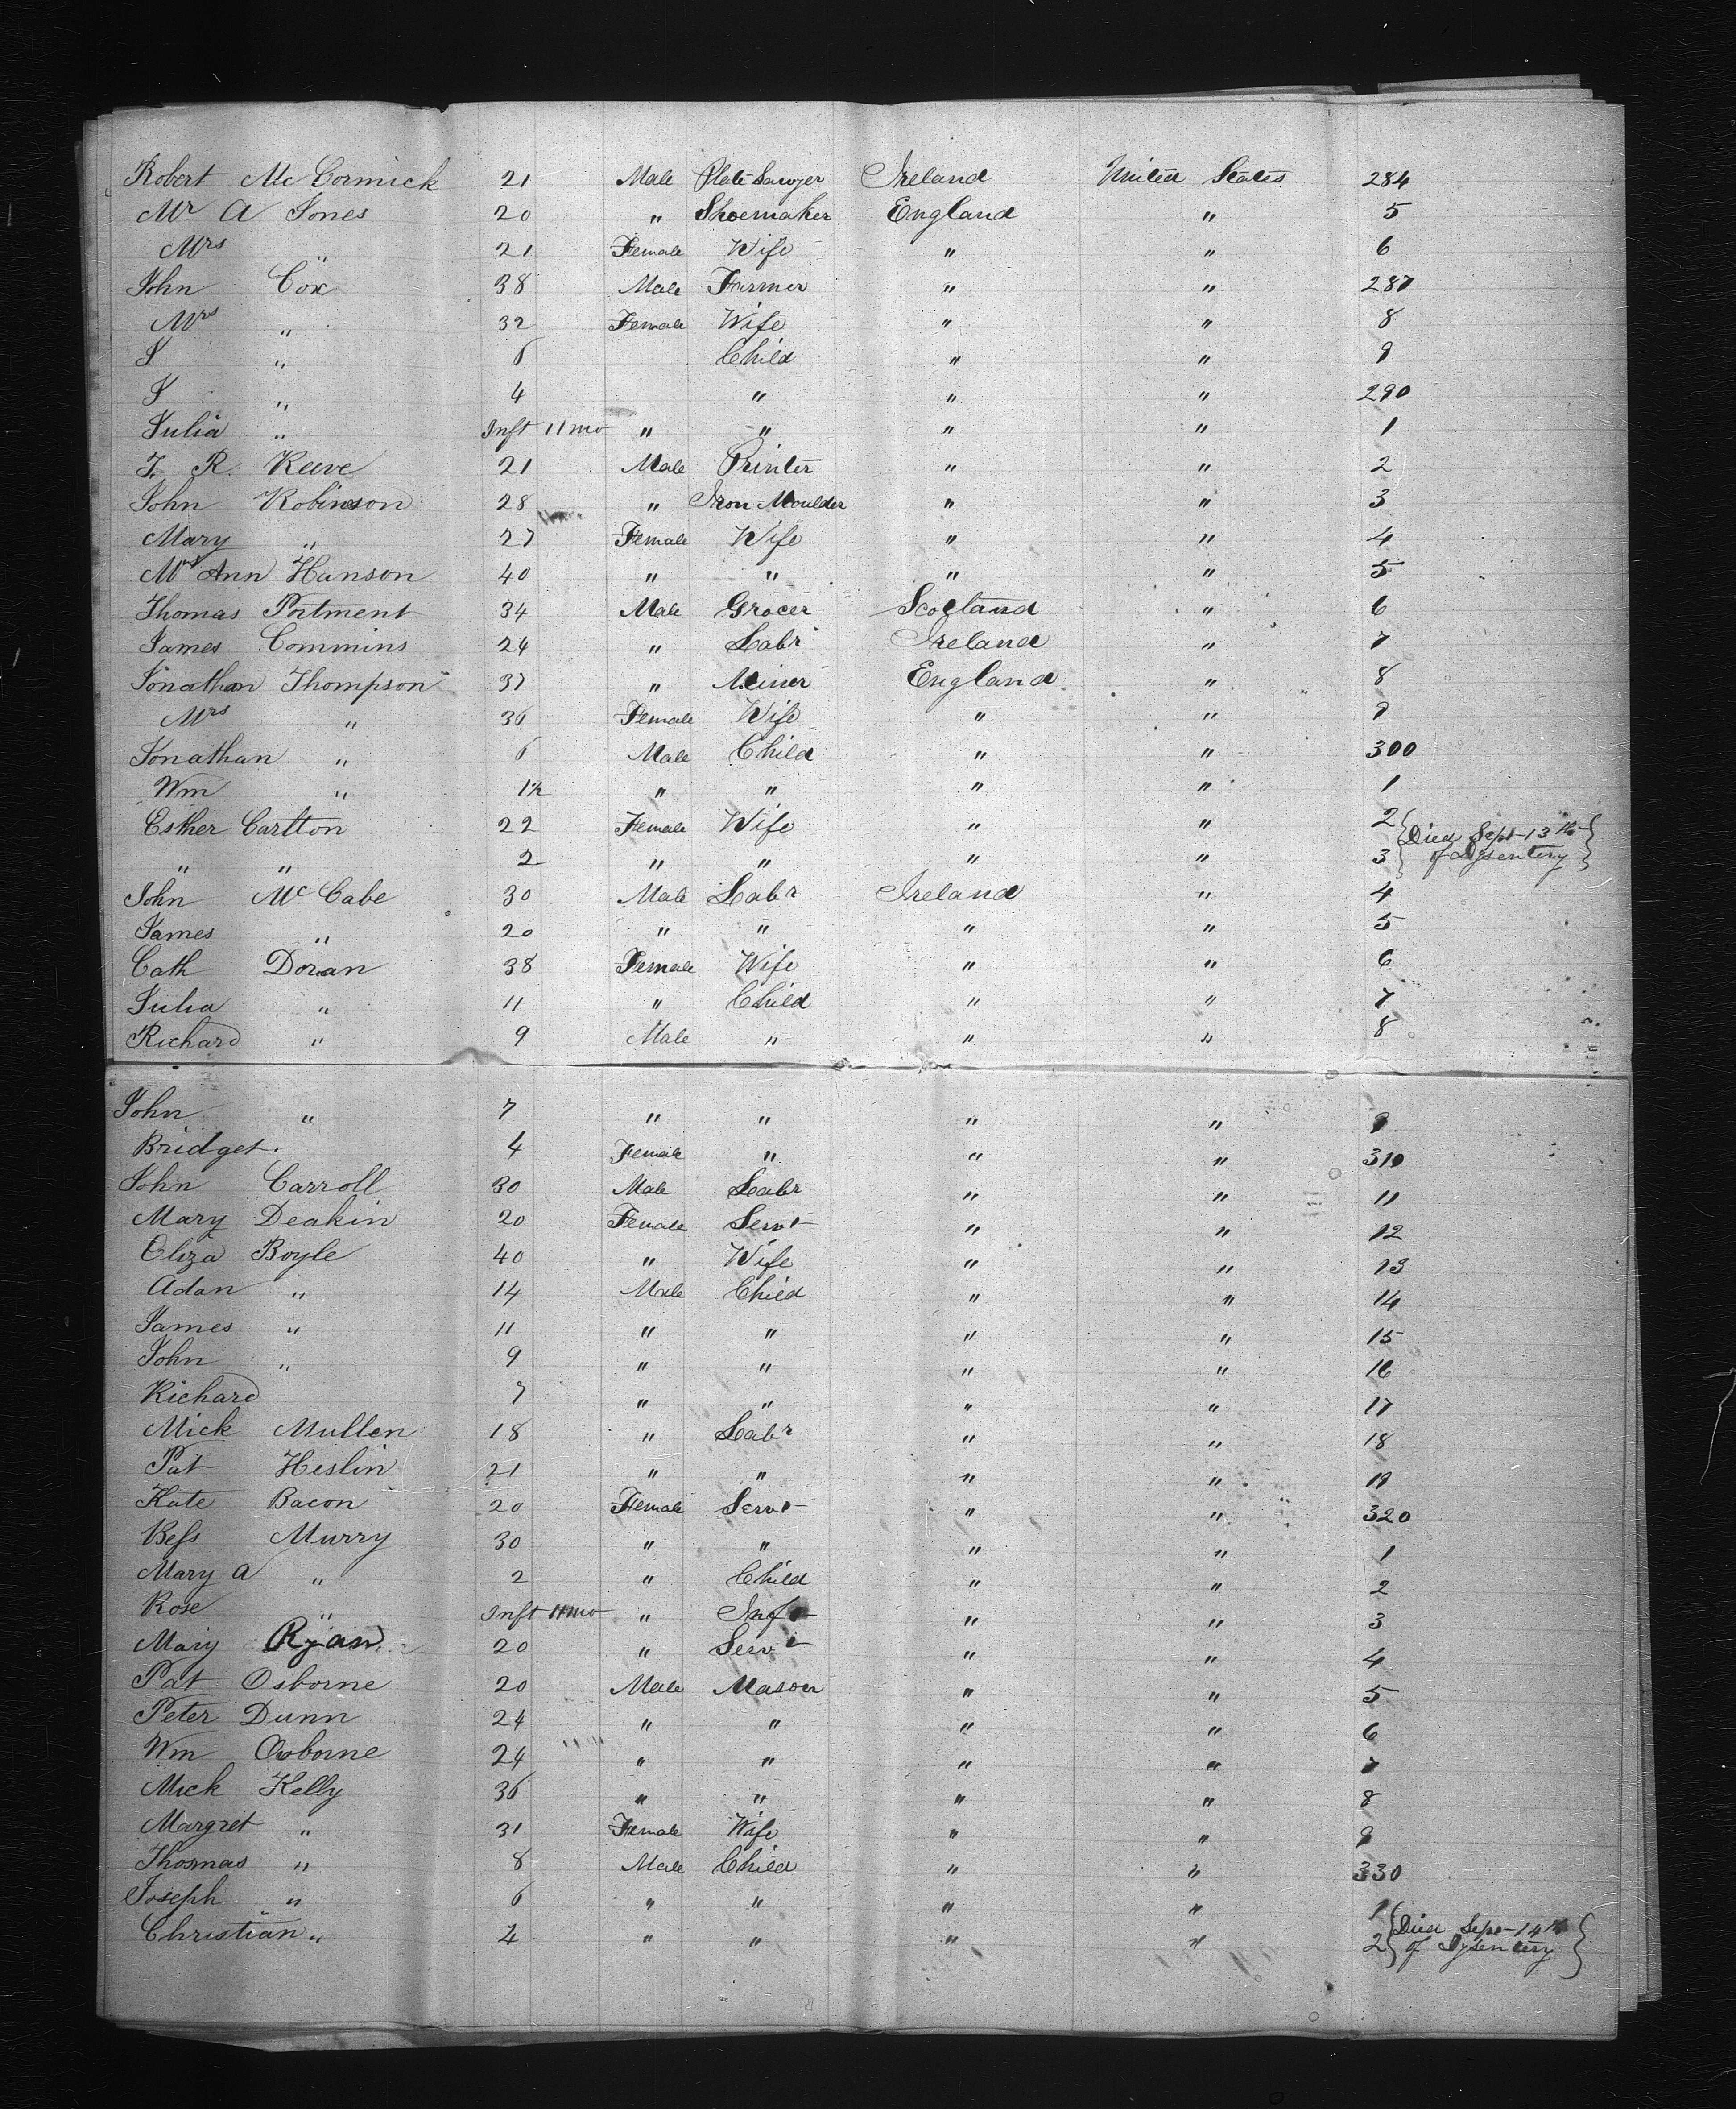 Robert Mc Cormick 21 Male Plate Sawyer Ireland United States 284
Mr A Jones 20 " Shoemaker England " 5
Mrs " 21 Female Wife " " 6
John Cox 38 Male Farmer " " 287
Mrs " 32 Female Wife " " 8
J " 6 Child " " 9
J " 4 " " " 290
Julia " Inft 11 mo " " " " 1
T. R. Reeve 21 Male Printer " " 2
John Robinson 28 " Iron Moulder " " 3
Mary " 27 Female Wife " " 4
Mrs Ann Hanson 40 " " " " 5
Thomas Portment 34 Male Grocer Scotland " 6
James Commins 24 " Labr Ireland " 7
Jonathan Thompson 37 " Miner England " 8
Mrs " 36 Female Wife " " 9
Jonathan " 6 Male Child " " 300
Wm " 12 " " " " 1
Esther Carlton 22 Female Wife " " 2
" " 2 " " " " 3 {Died Sept 13th of Dysentery}
John Mc Cabe 30 Male Labr Ireland " 4
James " 20 " " " " 5
Cath Doran 38 Female Wife " " 6
Julia " 11 " Child " " 7
Richard " 9 Male " " " 8
John " 7 " " " " 9
Bridget. 4 Female " " " 310
John Carroll 30 Male Labr " " 11
Mary Deakin 20 Female Servt " " 12
Eliza Boyle 40 " Wife " " 13
Adan " 14 Male Child " " 14
James " 11 " " " " 15
John " 9 " " " " 16
Richard 7 " " " " 17
Mick Mullen 18 " Labr " " 18
Pat Heslin 21 " " " " 19
Kate Bacon 20 Female Servt " " 320
Bess Murry 30 " " " " 1
Mary A " 2 " Child " " 2
Rose " Inft 11 mo " Inft " " 3
Mary Ryan 20 " Servt " " 4
Pat Osborne 20 Male Mason " " 5
Peter Dunn 24 " " " " 6
Wm Osborne 24 " " " " 7
Mick Kelly 36 " " " " 8
Margret " 31 Female Wife " " 9
Thosmas " 8 Male Child " " 330
Joseph " 6 " " " " 1
Christian " 4 " " " " 2 {Died Sept 14th of Dysentery}